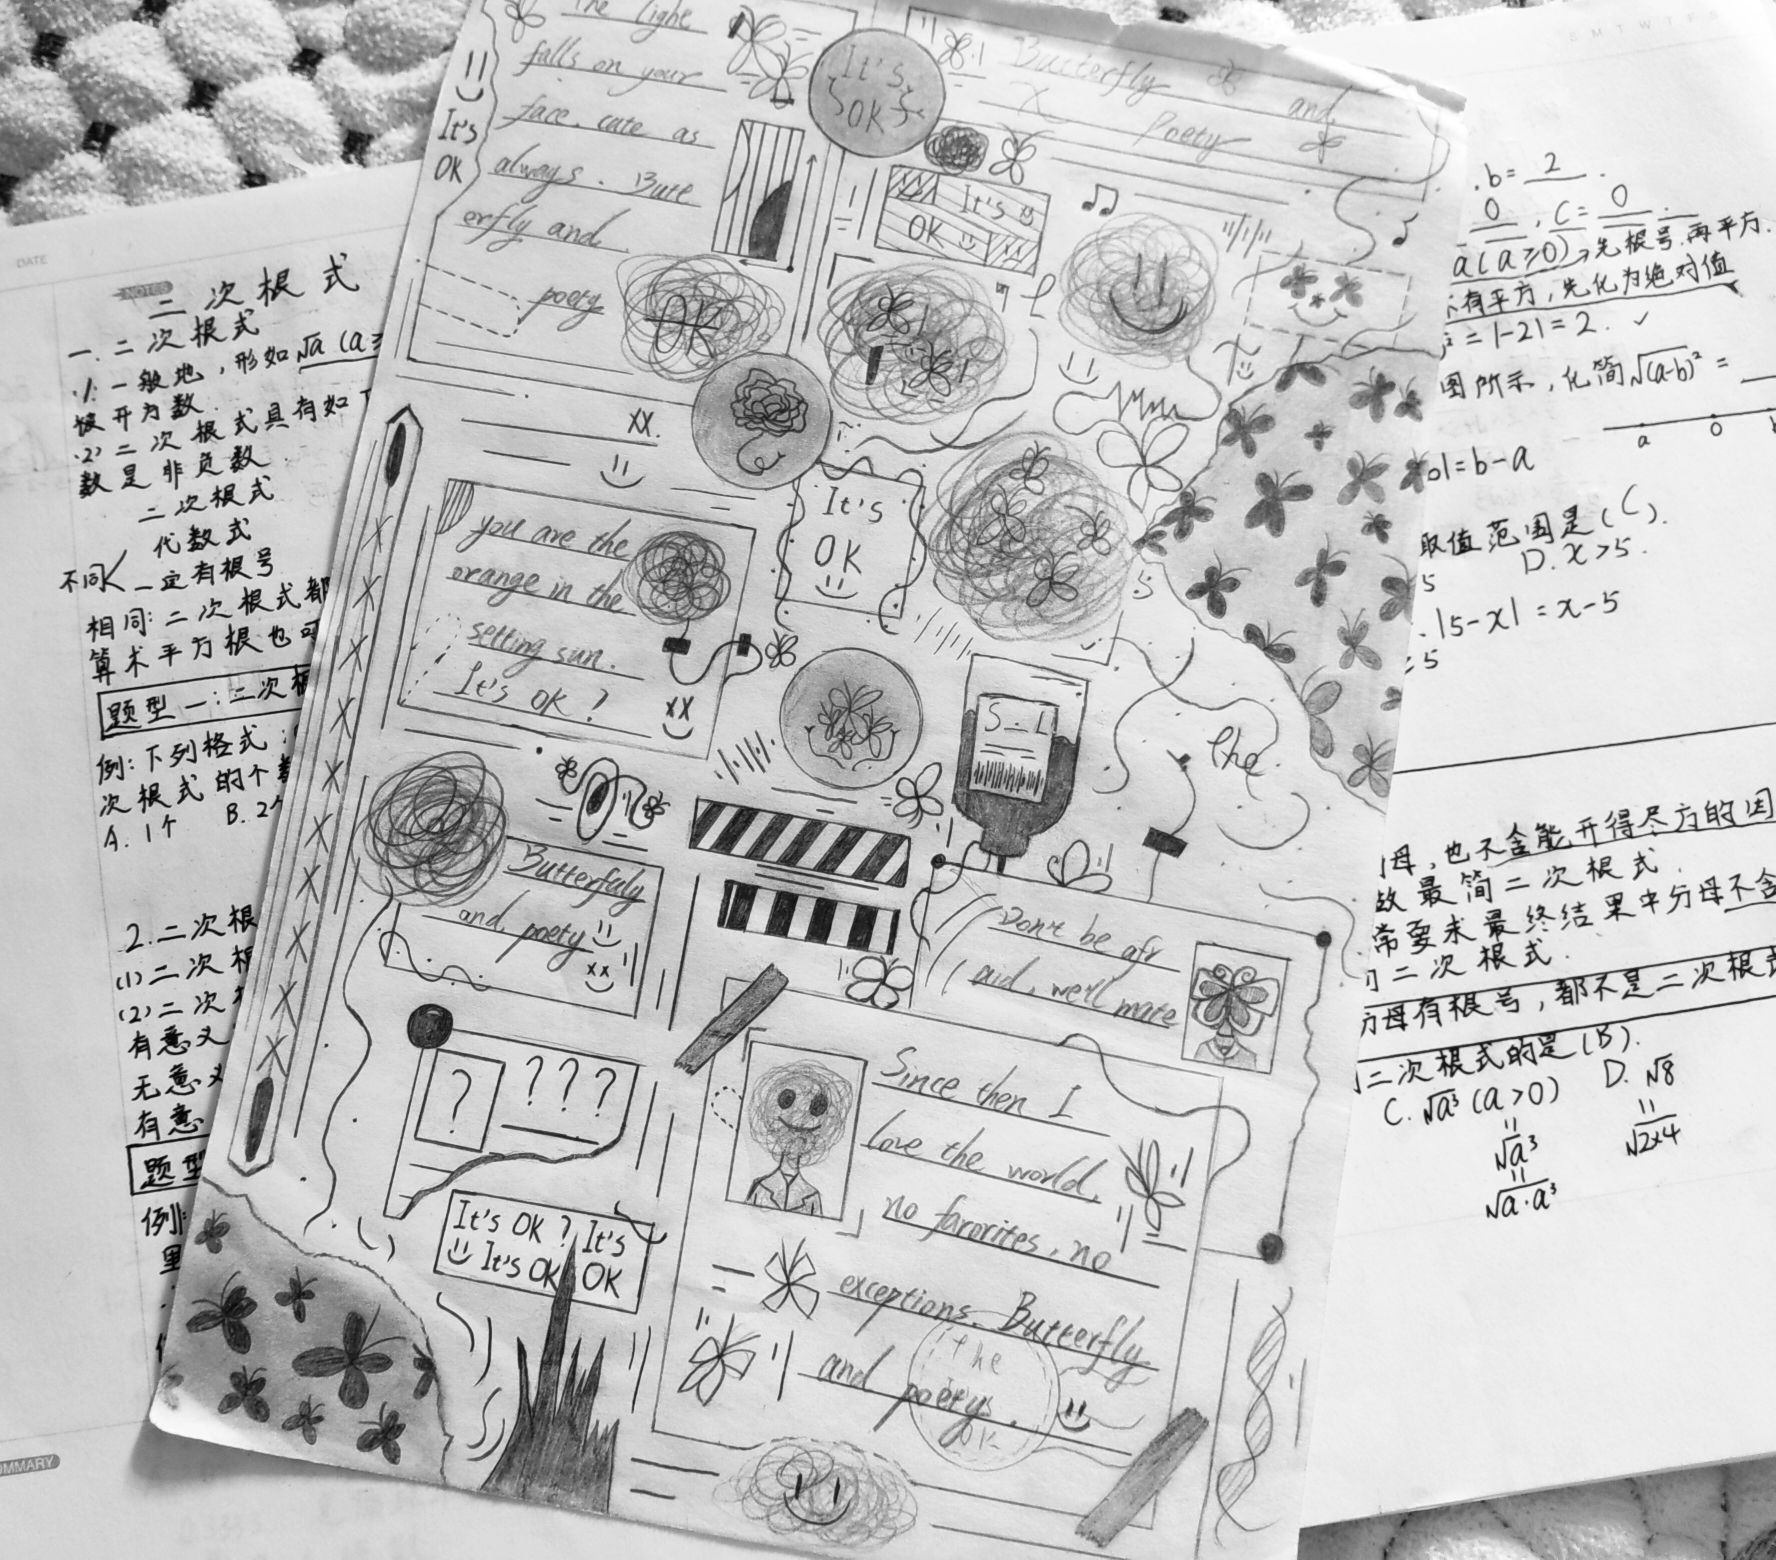 The light
falls on your
face, cute as
always. Butt
erfly and
poety
It's
OK
It's
OK
Butterfly
and
X
Poety
It's
OK
OK
xx.
you are the
orange in the
setting sun.
It's OK ?
xx
It's
OK
S-L
the
Butterfuly
and poety
xx
Don't be afr
aid, we'll mate
?
? ? ?
It's OK ? It's
It's OK OK
Since then I
love the world,
no farorites, no
exceptions. Butterfly
and poetys.
the
OK
DATE
NOTES
二次根式
一.二次根式
(1)一般地,形如√a (a≥
被开方数.
(2)二次根式具有如
数是非负数
二次根式
代数式
不同
一定有根号
相同:二次根式都
算术平方根也可
题型一:二次根
例:下列格式:
次根式的个数
A. 1个 B. 2个
2.二次根
(1)二次根
(2)二次
有意义
无意义
有意
题型
例:
里
SUMMARY
S M T W T F S
.b= 2
0 , C= 0
a(a≥0)→先根号.再平方.
有平方,先化为绝对值
=|-2|=2. ✓
图所示,化简√(a-b)² =
a 0 b
0|=b-a
取值范围是(C).
5 D. x>5.
.|5-x|=x-5
=5
母,也不含能开得尽方的因
故最简二次根式.
常要求最终结果中分母不含
二次根式.
分母有根号,都不是二次根式
二次根式的是(B).
C. √a³ (a>0) D. √8
√a³
√2×4
√a·a³